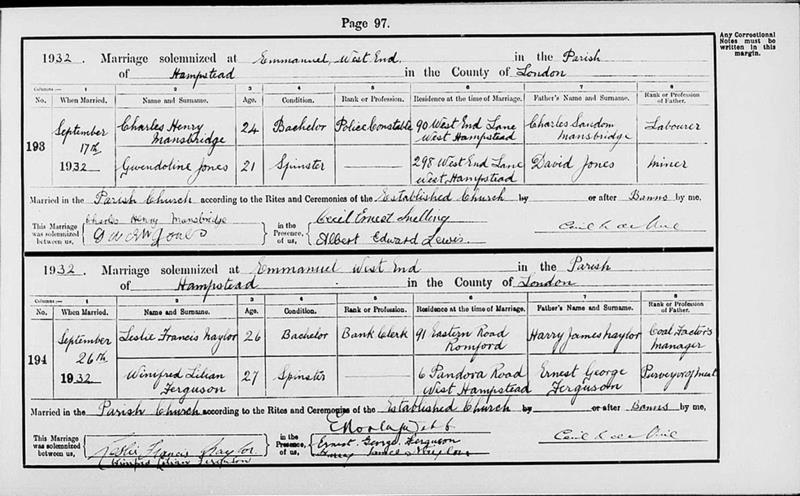 Page 97.
Any Correctional
Notes must be
written in this
margin.
1932. Marriage solemnized at Emmanuel, West End in the Parish
of Hampstead in the County of London
Columns:— 1 2 3 4 5 6 7 8
No. When Married. Name and Surname. Age. Condition. Rank or Profession. Residence at the time of Marriage. Father's Name and Surname. Rank or Profession of Father.
193 September 17th 1932
Charles Henry Mansbridge 24 Bachelor Police Constable 90 West End Lane West Hampstead Charles Sandom Mansbridge Labourer
Gwendoline Jones 21 Spinster 298 West End Lane West Hampstead David Jones Miner
Married in the Parish Church according to the Rites and Ceremonies of the Established Church by or after Banns by me,
This Marriage was solemnized between us, Charles Henry Mansbridge in the Presence of us, Cecil Ernest Snelling
Jones Albert Edward Lewis.
1932. Marriage solemnized at Emmanuel West End in the Parish
of Hampstead in the County of London
Columns:— 1 2 3 4 5 6 7 8
No. When Married. Name and Surname. Age. Condition. Rank or Profession. Residence at the time of Marriage. Father's Name and Surname. Rank or Profession of Father.
194 September 26th 1932
Leslie Francis Naylor 26 Bachelor Bank Clerk 91 Eastern Road Romford Harry James Naylor Coal Factor's Manager
Winifred Lilian Ferguson 27 Spinster 6 Pandora Road West Hampstead Ernest George Ferguson Purveyor of meat
Married in the Parish Church according to the Rites and Ceremonies of the Established Church by or after Banns by me,
This Marriage was solemnized between us, Leslie Francis Naylor in the Presence of us, Ernest George Ferguson
Winifred Lilian Ferguson Harry James Naylor